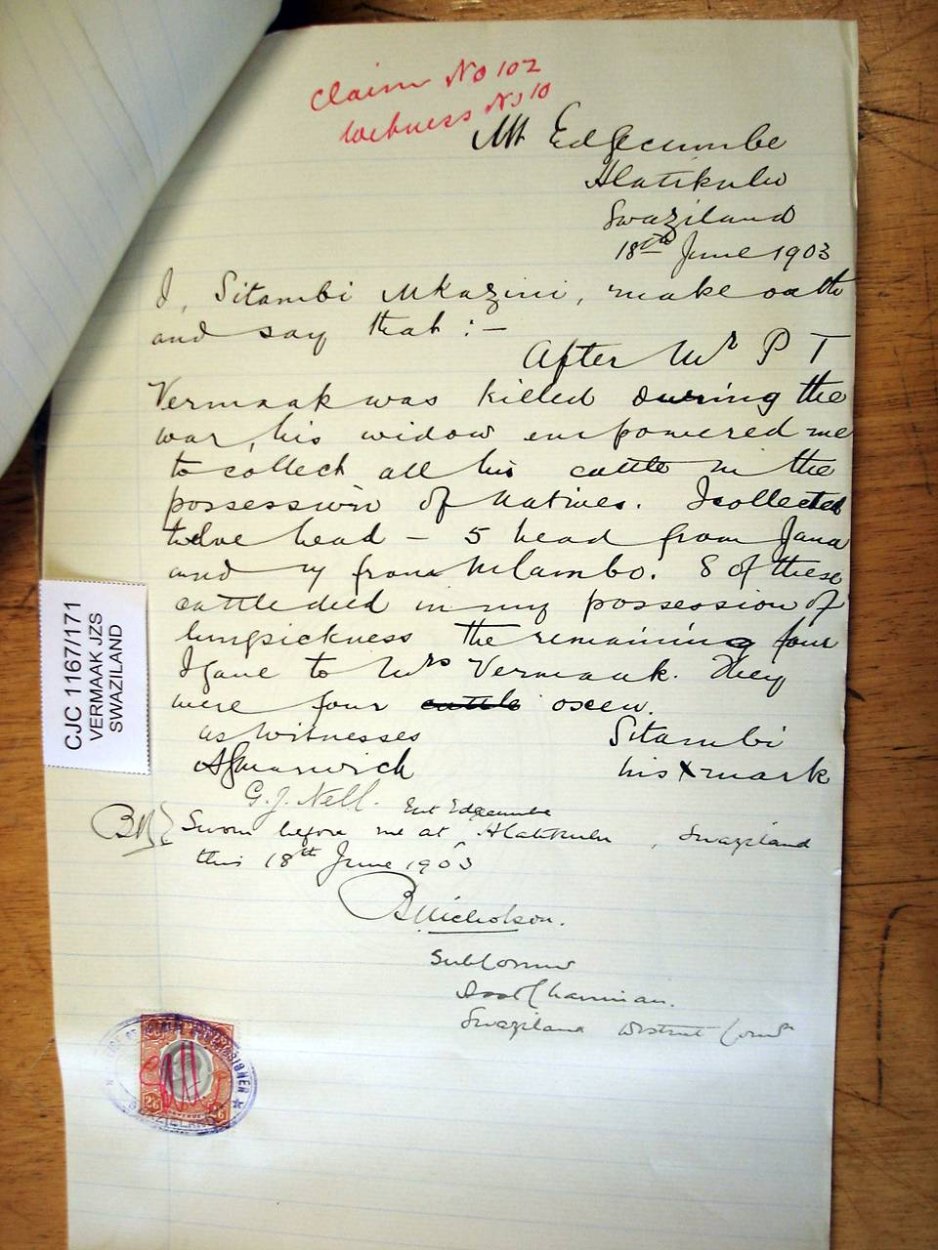 Claim No 102
Witness No 10
Mt Edgecumbe
Hlatikulu
Swaziland
18th June 1903
I, Sitambi Mkazini, make oath
and say that :-
After Mr P T
Vermaak was killed during the
war, his widow empowered me
to collect all his cattle in the
possession of natives. I collected
twelve head - 5 head from Jana
and 7 from Mlambo. 8 of these
cattle died in my possession of
lungsickness the remaining four
I gave to Mrs Vermaak. They
were four cattle oxen.
as witnesses
Sitambi
his X mark
G.J. Nell.
Mt Edgecumbe
BN
Sworn before me at Hlatikulu, Swaziland
this 18th June 1903
BNicholson.
SubCommr
Asst Chairman.
Swaziland District Comn
CJC 1167/171
VERMAAK JZS
SWAZILAND
2/6 2/6